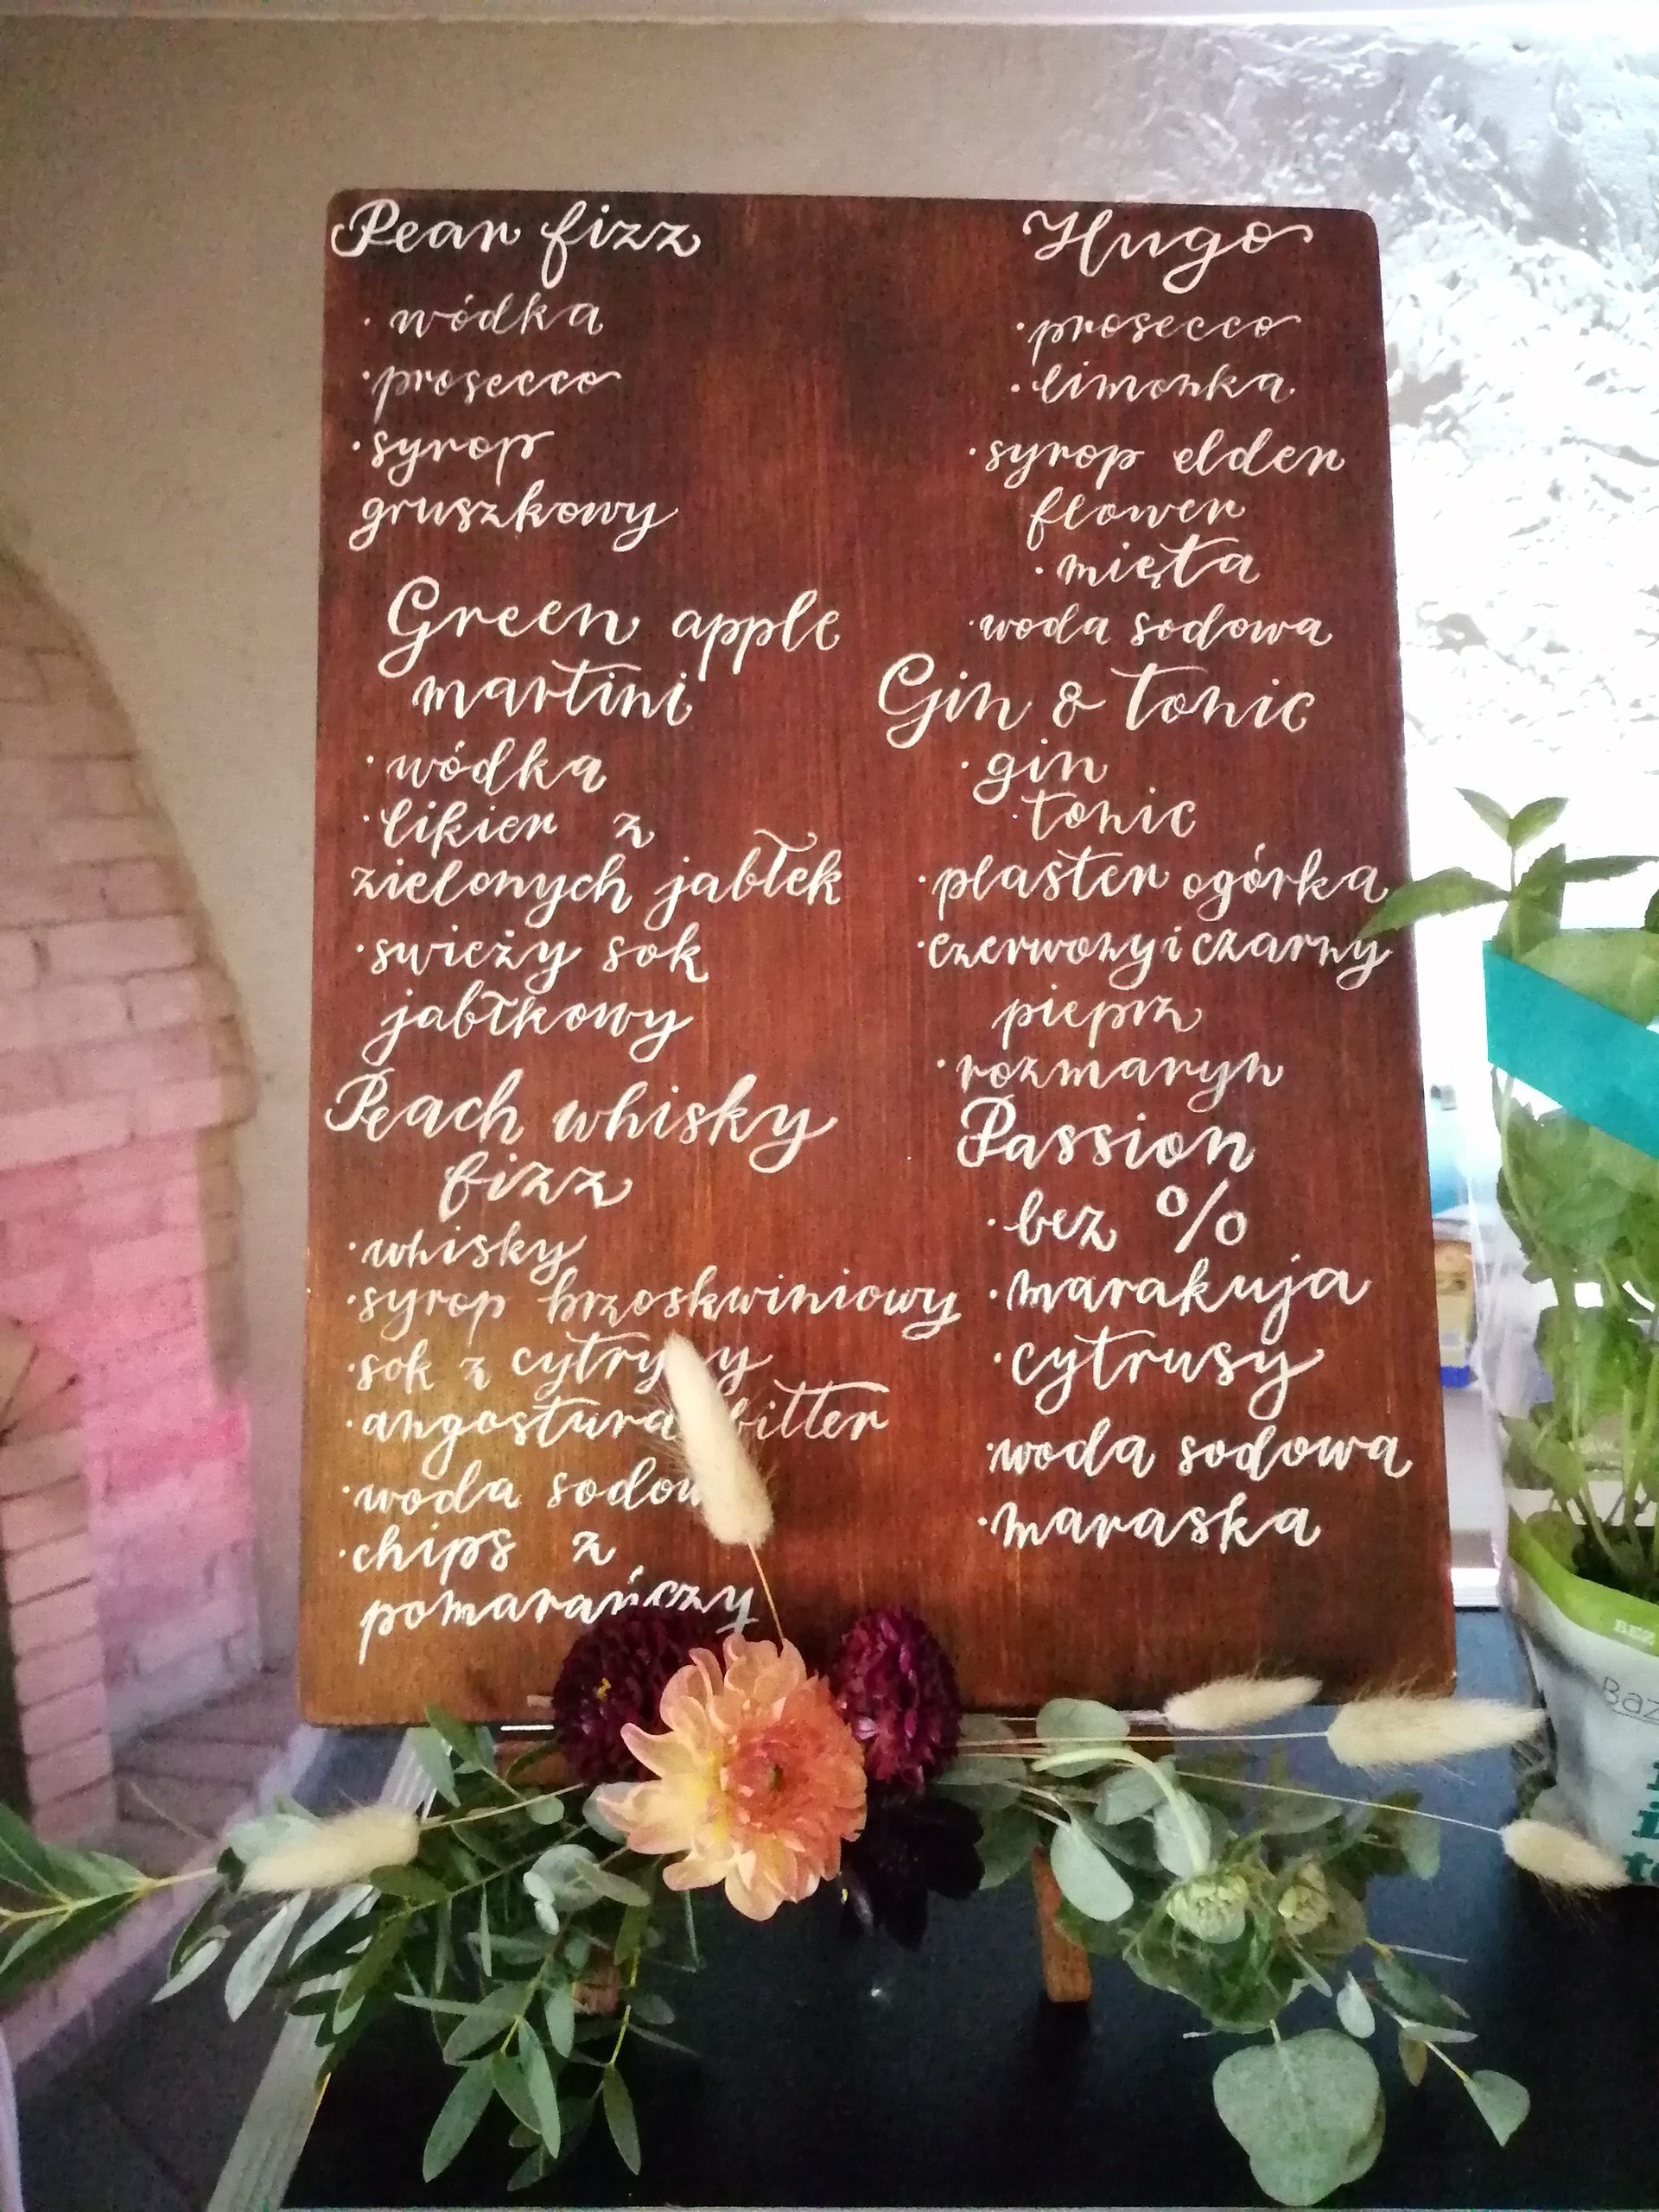 Pear fizz
· wódka
· prosecco
· syrop
gruszkowy
Green apple
martini
· wódka
· likier z
zielonych jabłek
· swieży sok
jabłkowy
Peach whisky
fizz
· whisky
· syrop brzoskwiniowy
· sok z cytryny
· angostura bitter
· woda sodowa
· chips z
pomarańczy
Hugo
· prosecco
· limonka
· syrop elder
flower
· mięta
· woda sodowa
Gin & tonic
· gin
· tonic
· plaster ogórka
· czerwony i czarny
pieprz
· rozmaryn
Passion
· bez %
· marakuja
· cytrusy
· woda sodowa
· maraska
BEZ